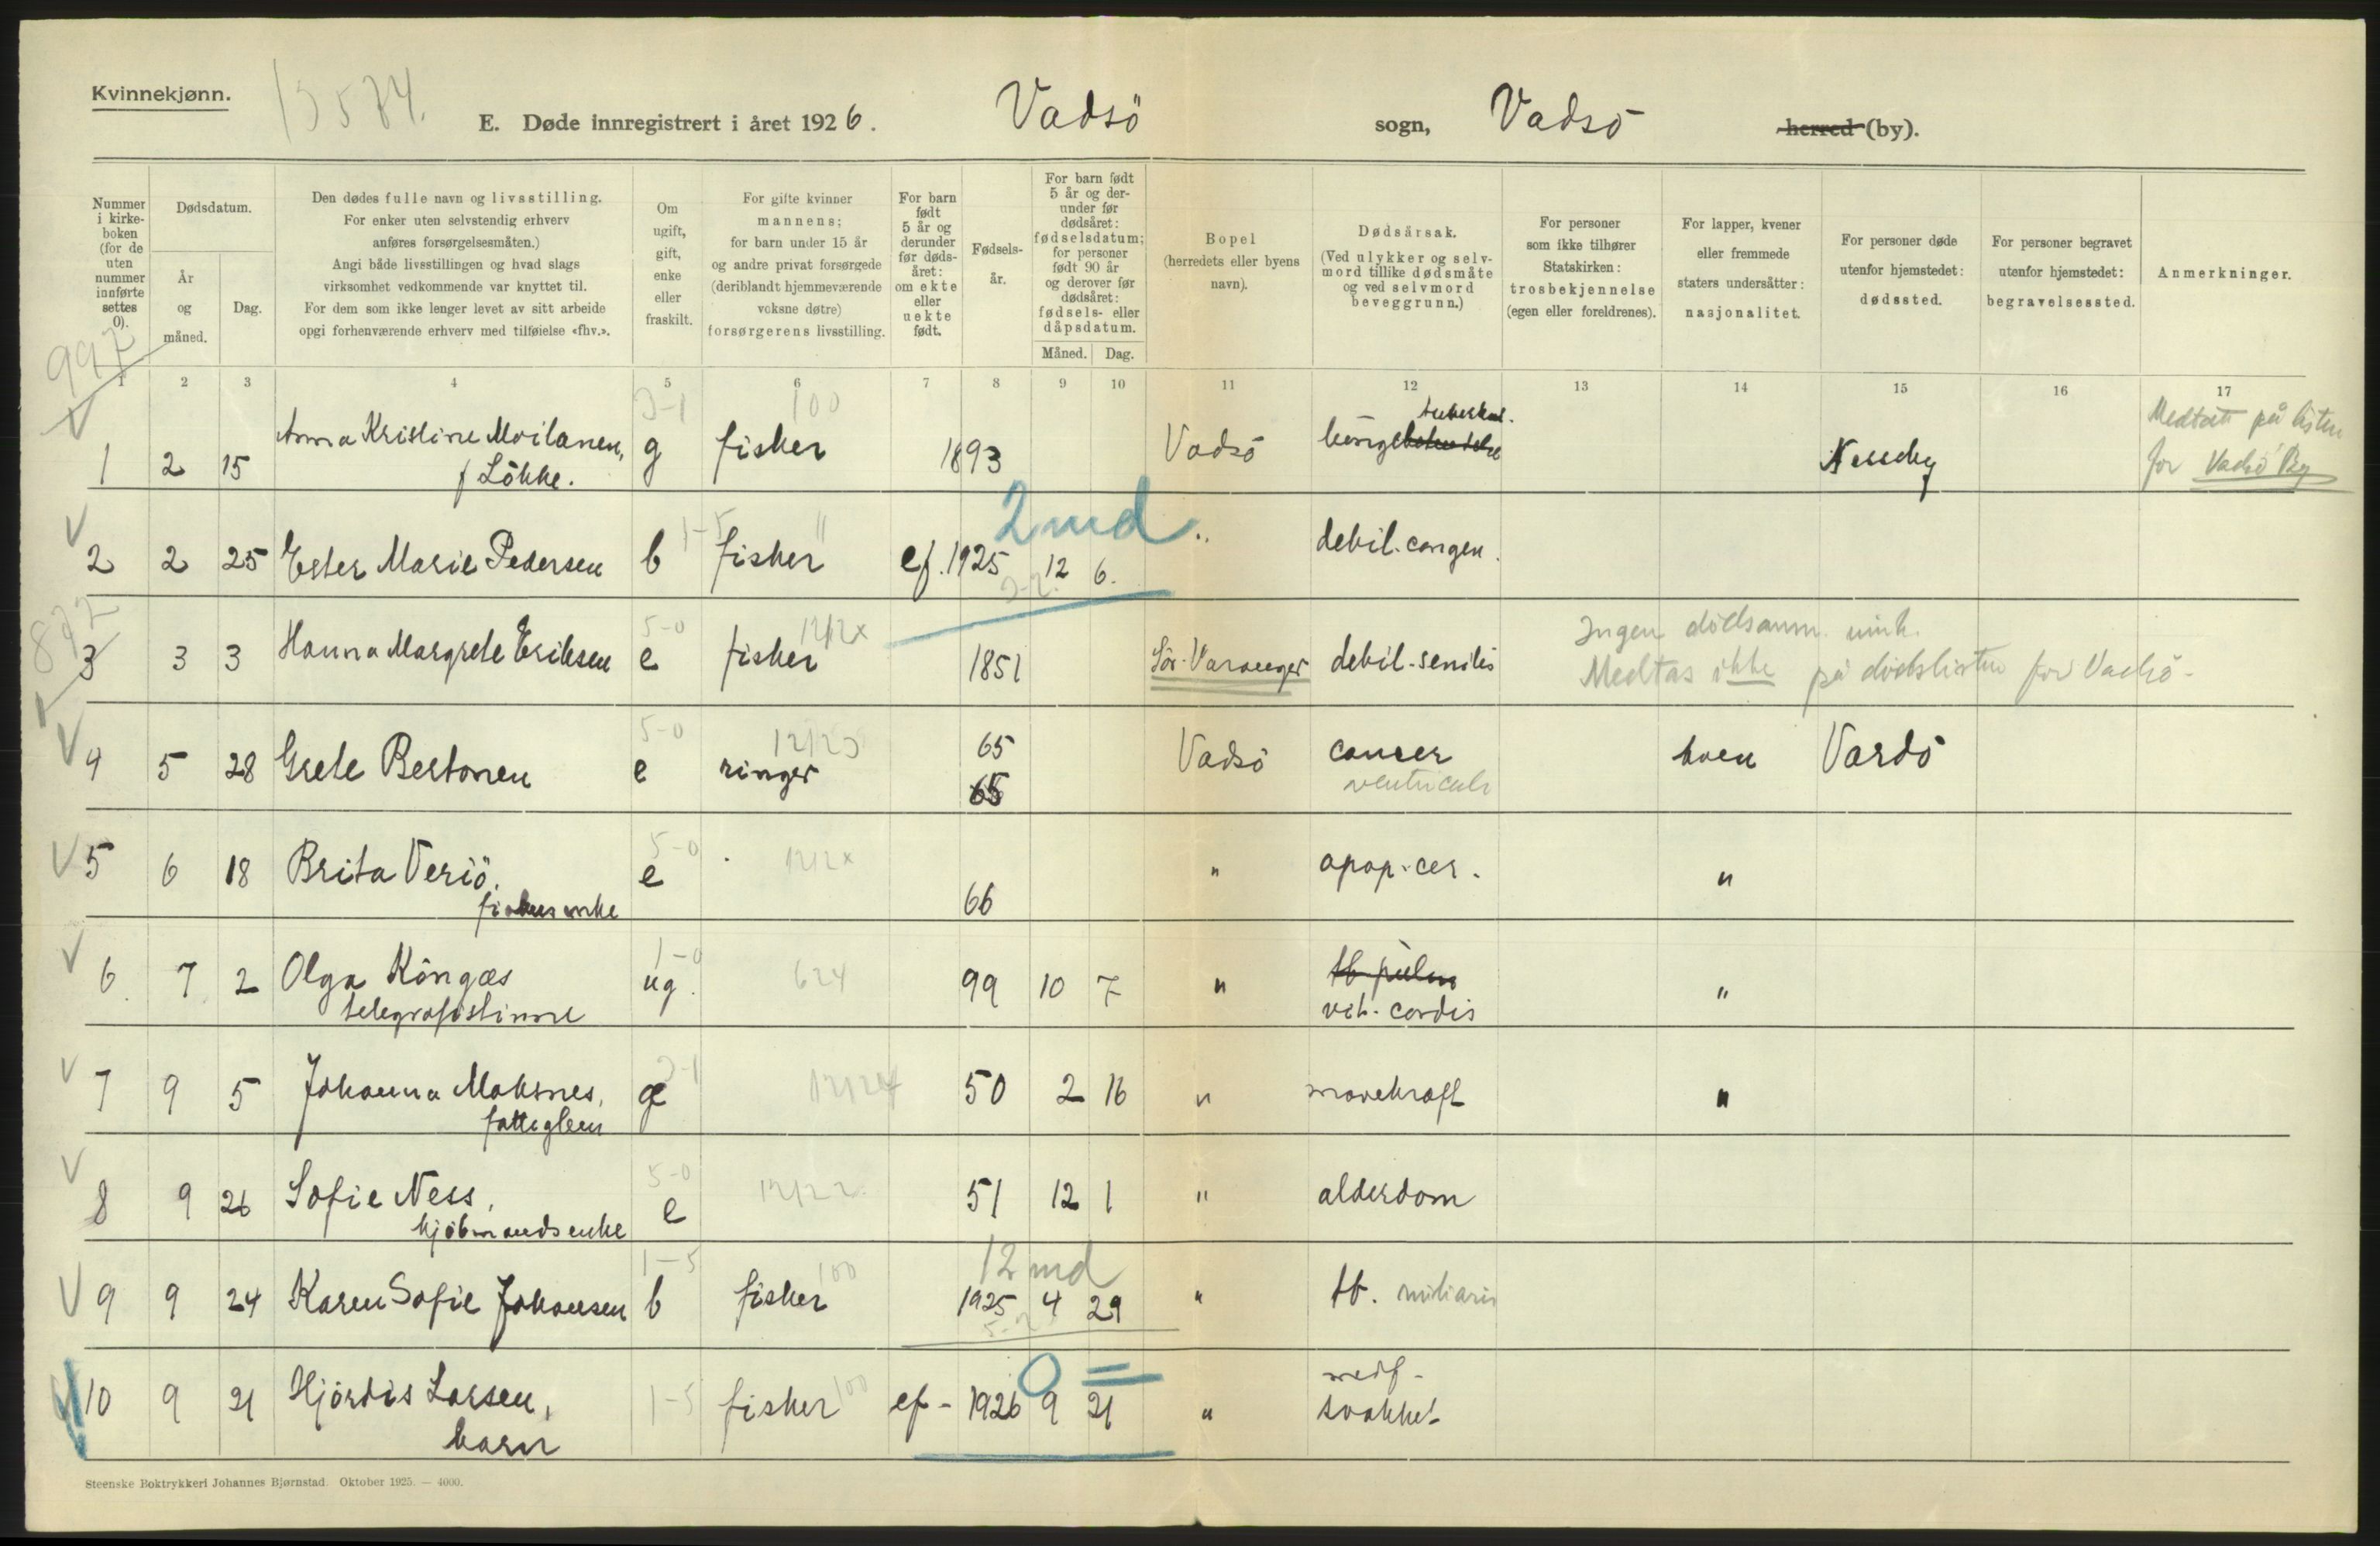 Kvinnekjønn.
13574.
E. Døde innregistrert i året 1926. Vadsö sogn, Vadsö herred (by).
Nummer i kirkeboken (for de uten nummer innførte settes 0).
Dødsdatum.
År og måned.
Dag.
Den dødes fulle navn og livsstilling.
For enker uten selvstendig erhverv
anføres forsørgelsesmåten.)
Angi både livsstillingen og hvad slags
virksomhet vedkommende var knyttet til.
For dem som ikke lenger levet av sitt arbeide
opgi forhenværende erhverv med tilføielse «fhv.».
Om ugift, gift, enke eller fraskilt.
For gifte kvinner
mannens;
for barn under 15 år
og andre privat forsørgede
(deriblandt hjemmeværende
voksne døtre)
forsørgerens livsstilling.
For barn født 5 år og derunder før dødsåret: om ekte eller uekte født.
Fødselsår.
For barn født 5 år og derunder før dødsåret: fødselsdatum; for personer født 90 år og derover før dødsåret: fødsels- eller dåpsdatum.
Måned. Dag.
Bopel
(herredets eller byens
navn).
Dødsårsak.
(Ved ulykker og selvmord tillike dødsmåte
og ved selvmord
beveggrunn.)
For personer
som ikke tilhører
Statskirken:
trosbekjennelse
(egen eller foreldrenes).
For lapper, kvener
eller fremmede
staters undersåtter:
nasjonalitet.
For personer døde
utenfor hjemstedet:
dødssted.
For personer begravet
utenfor hjemstedet:
begravelsessted.
Anmerkninger.
997
1 2 3 4 5 6 7 8 9 10 11 12 13 14 15 16 17
3-1 100 tuberkul. Medtatt på listen
1 2 15 Anna Kristine Moilanen, g fisher 1893 Vadsö lunge Nesseby for Vadsö By
f Lökke.
1-5 11 2 md
2 2 25 Ester Marie Pedersen b fisher ef. 1925 12 6. " debil. congen.
872
5-0 12/2x Ingen dödsanm. innk.
3 3 3 Hanna Margrete Eriksen e fisher 1851 Sör-Varanger debil-senilis Medtas ikke på dödslisten for Vadsö
5-0 12/23
4 5 28 Grete Bertonen e ringer 65 Vadsö cancer kven Vardö
65 ventriculi
5-0 12/2x
5 6 18 Brita Veriö. e 66 " apop. cer. "
fiskerenke
1-0 624
6 7 2 Olga Köngæs ug. 99 10 7 " tb pulm "
telegrafistinne vit. cordis
3-1 12/24
7 9 5 Johanna Moksnes, g 50 2 16 " mavekraft "
fattiglem
5-0 12/22
8 9 26 Sofie Ness, e 51 12 1 " alderdom
kjöbmandsenke
1-5 100 12 md
9 9 24 Karen Sofie Johansen b fisher 1925 4 29 " tb. miliaris
1-5 100 0
10 9 21 Hjördis Larsen, fisher ef- 1926 9 21 " medf. svakhet
barn
Steenske Boktrykkeri Johannes Bjørnstad. Oktober 1925. — 4000.